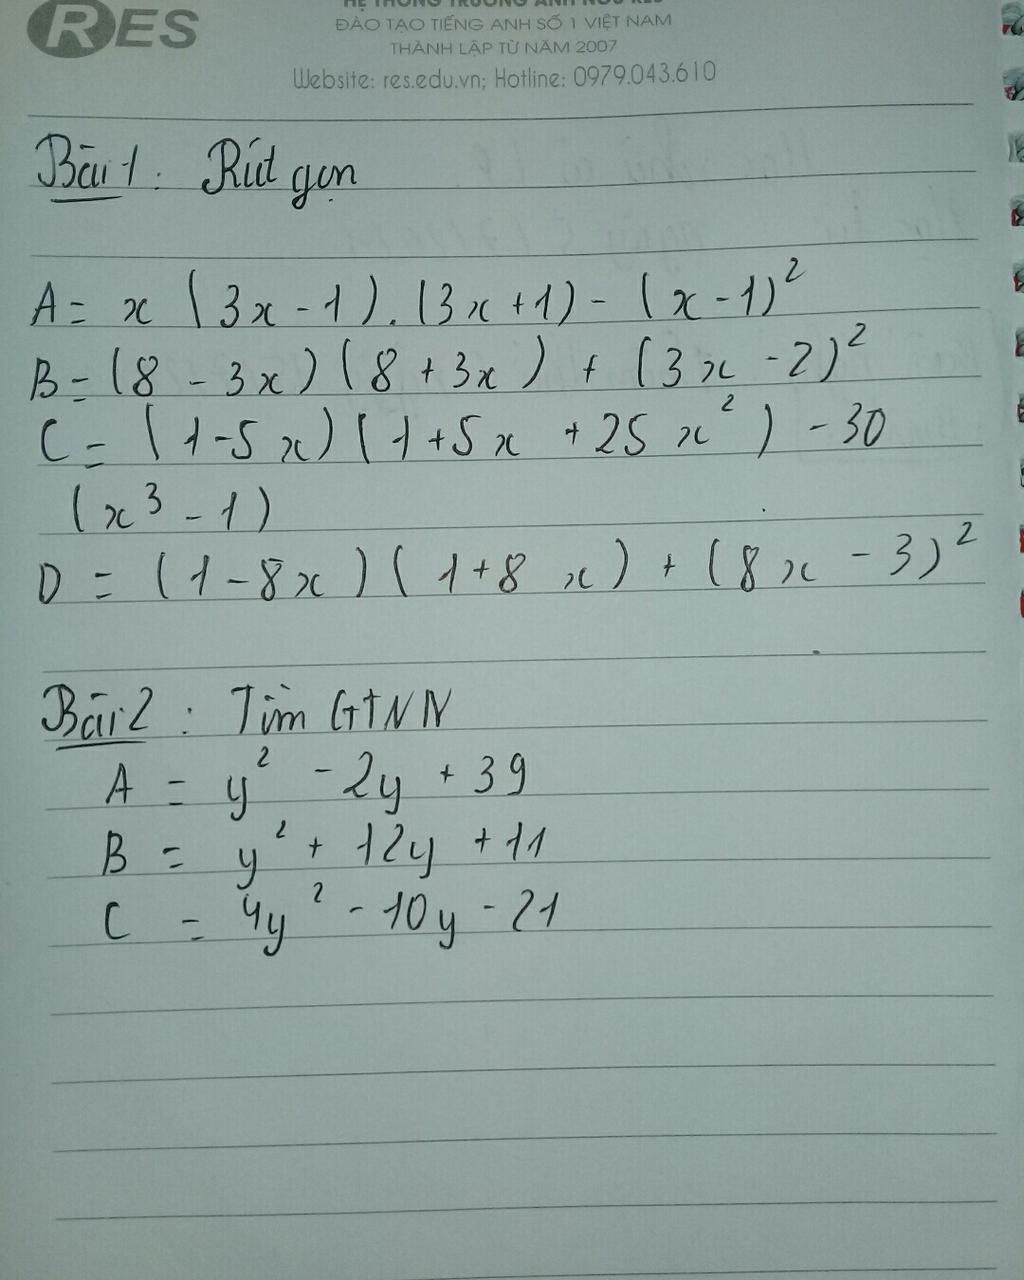 RES
HỆ THỐNG TRƯỜNG ANH NGỮ RES
ĐÀO TẠO TIẾNG ANH SỐ 1 VIỆT NAM
THÀNH LẬP TỪ NĂM 2007
Website: res.edu.vn; Hotline: 0979.043.610
Bài 1: Rút gọn
A = x (3x - 1). (3x + 1) - (x - 1)²
B = (8 - 3x) (8 + 3x) + (3x - 2)²
C = (1 - 5x) (1 + 5x + 25x²) - 30
(x³ - 1)
D = (1 - 8x) (1 + 8x) + (8x - 3)²
Bài 2: Tìm GTNN
A = y² - 2y + 39
B = y² + 12y + 11
C = 4y² - 10y - 21